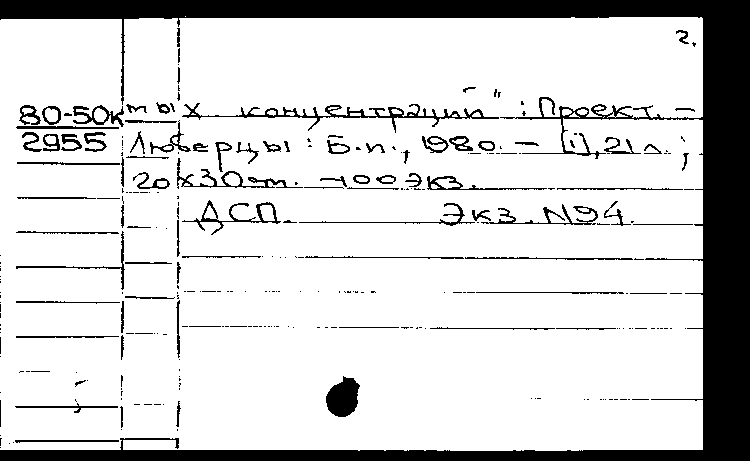 2.
80-50к тых концентраций" : Проект. –
2955 Люберцы : Б.и., 1980. – [1], 21 л. ;
20х30 см. – 100 экз.
ДСП. Экз. N94.